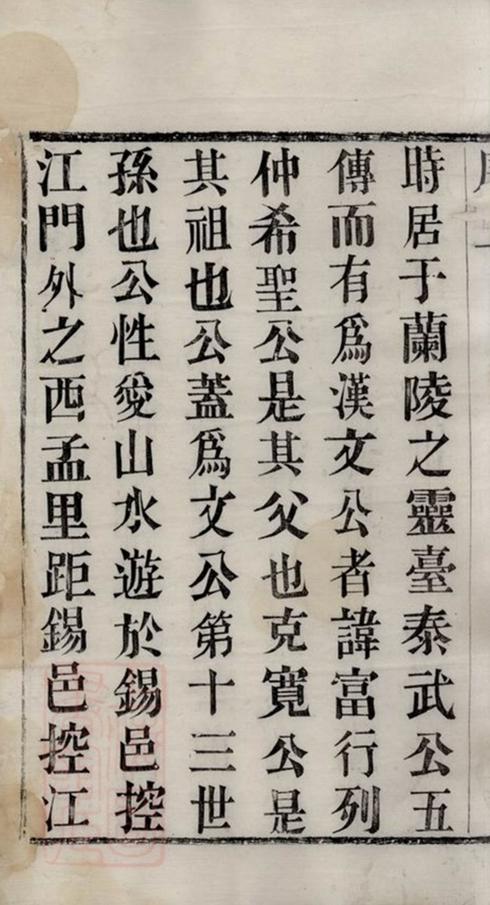 時居于蘭陵之靈臺泰武公五
傳而有爲漢文公者諱富行列
仲希聖公是其父也克寬公是
其祖也公蓋爲文公第十三世
孫也公性愛山水遊於錫邑控
江門外之西孟里距錫邑控江